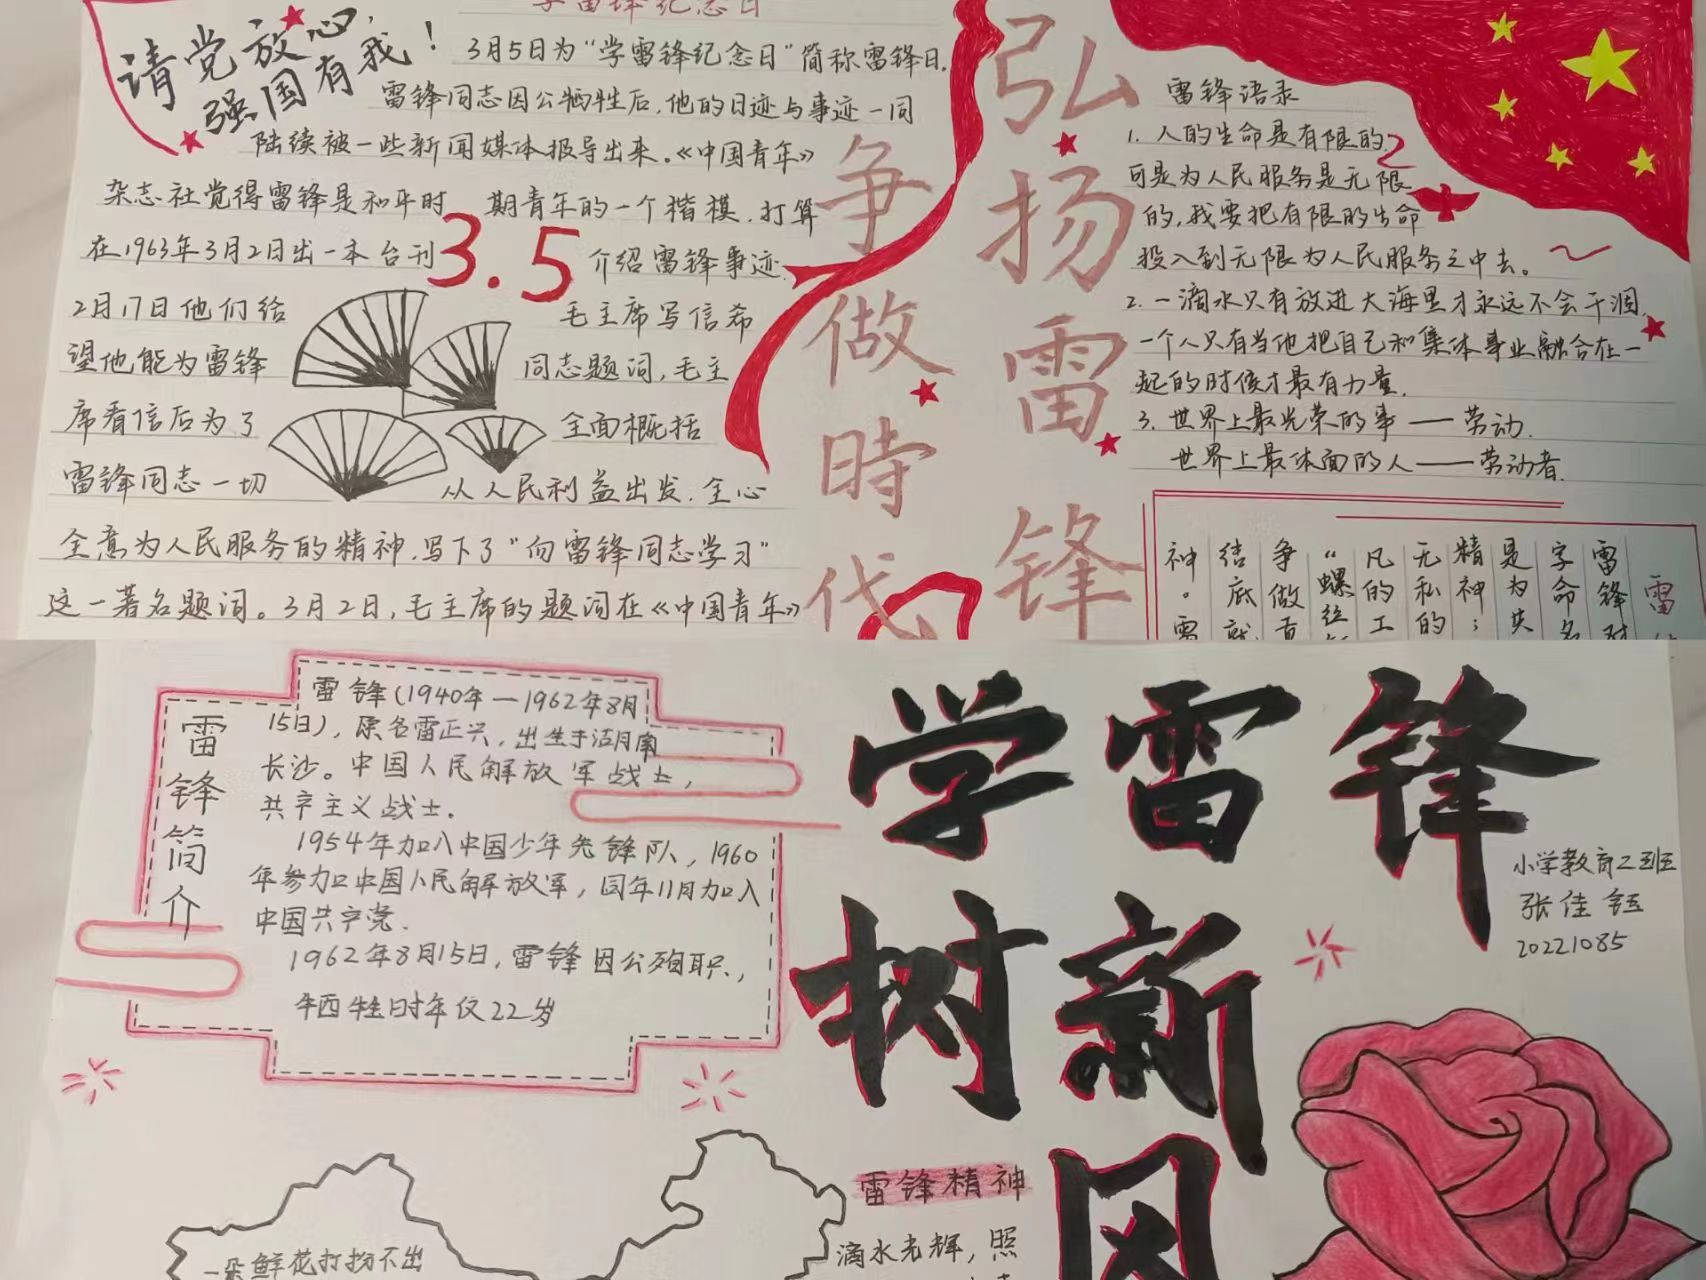 学雷锋纪念日
请党放心，
强国有我！
3月5日为“学雷锋纪念日”简称雷锋日.
雷锋同志因公牺牲后，他的日迹与事迹一同
陆续被一些新闻媒体报导出来。《中国青年》
杂志社觉得雷锋是和平时期青年的一个楷模，打算
在1963年3月2日出一本合刊介绍雷锋事迹、
3.5
2月17日他们给毛主席写信希
望他能为雷锋同志题词，毛主
席看信后为了全面概括
雷锋同志一切从人民利益出发，全心
全意为人民服务的精神，写下了“向雷锋同志学习”
这一著名题词。3月2日，毛主席的题词在《中国青年》
弘扬雷锋
争做時代
雷锋语录
1. 人的生命是有限的，
可是为人民服务是无限
的，我要把有限的生命
投入到无限为人民服务之中去。
2. 一滴水只有放进大海里才永远不会干涸，
一个人只有当他把自己和集体事业融合在一
起的时候才最有力量.
3. 世界上最光荣的事——劳动.
世界上最体面的人——劳动者.
雷
雷锋
字命名
是为共
精神；
无私的
凡的工
“螺丝
争做
结底就
神。雷
雷锋简介
雷锋(1940年—1962年8月
15日)，原名雷正兴，出生于湖南
长沙。中国人民解放军战士，
共产主义战士.
1954年加入中国少年先锋队，1960
年参加中国人民解放军，同年11月加入
中国共产党.
1962年8月15日，雷锋因公殉职，
牺牲时年仅22岁
学雷锋
树新风
小学教育二班
张佳钰
20221085
雷锋精神
滴水光辉，照
一朵鲜花打扮不出